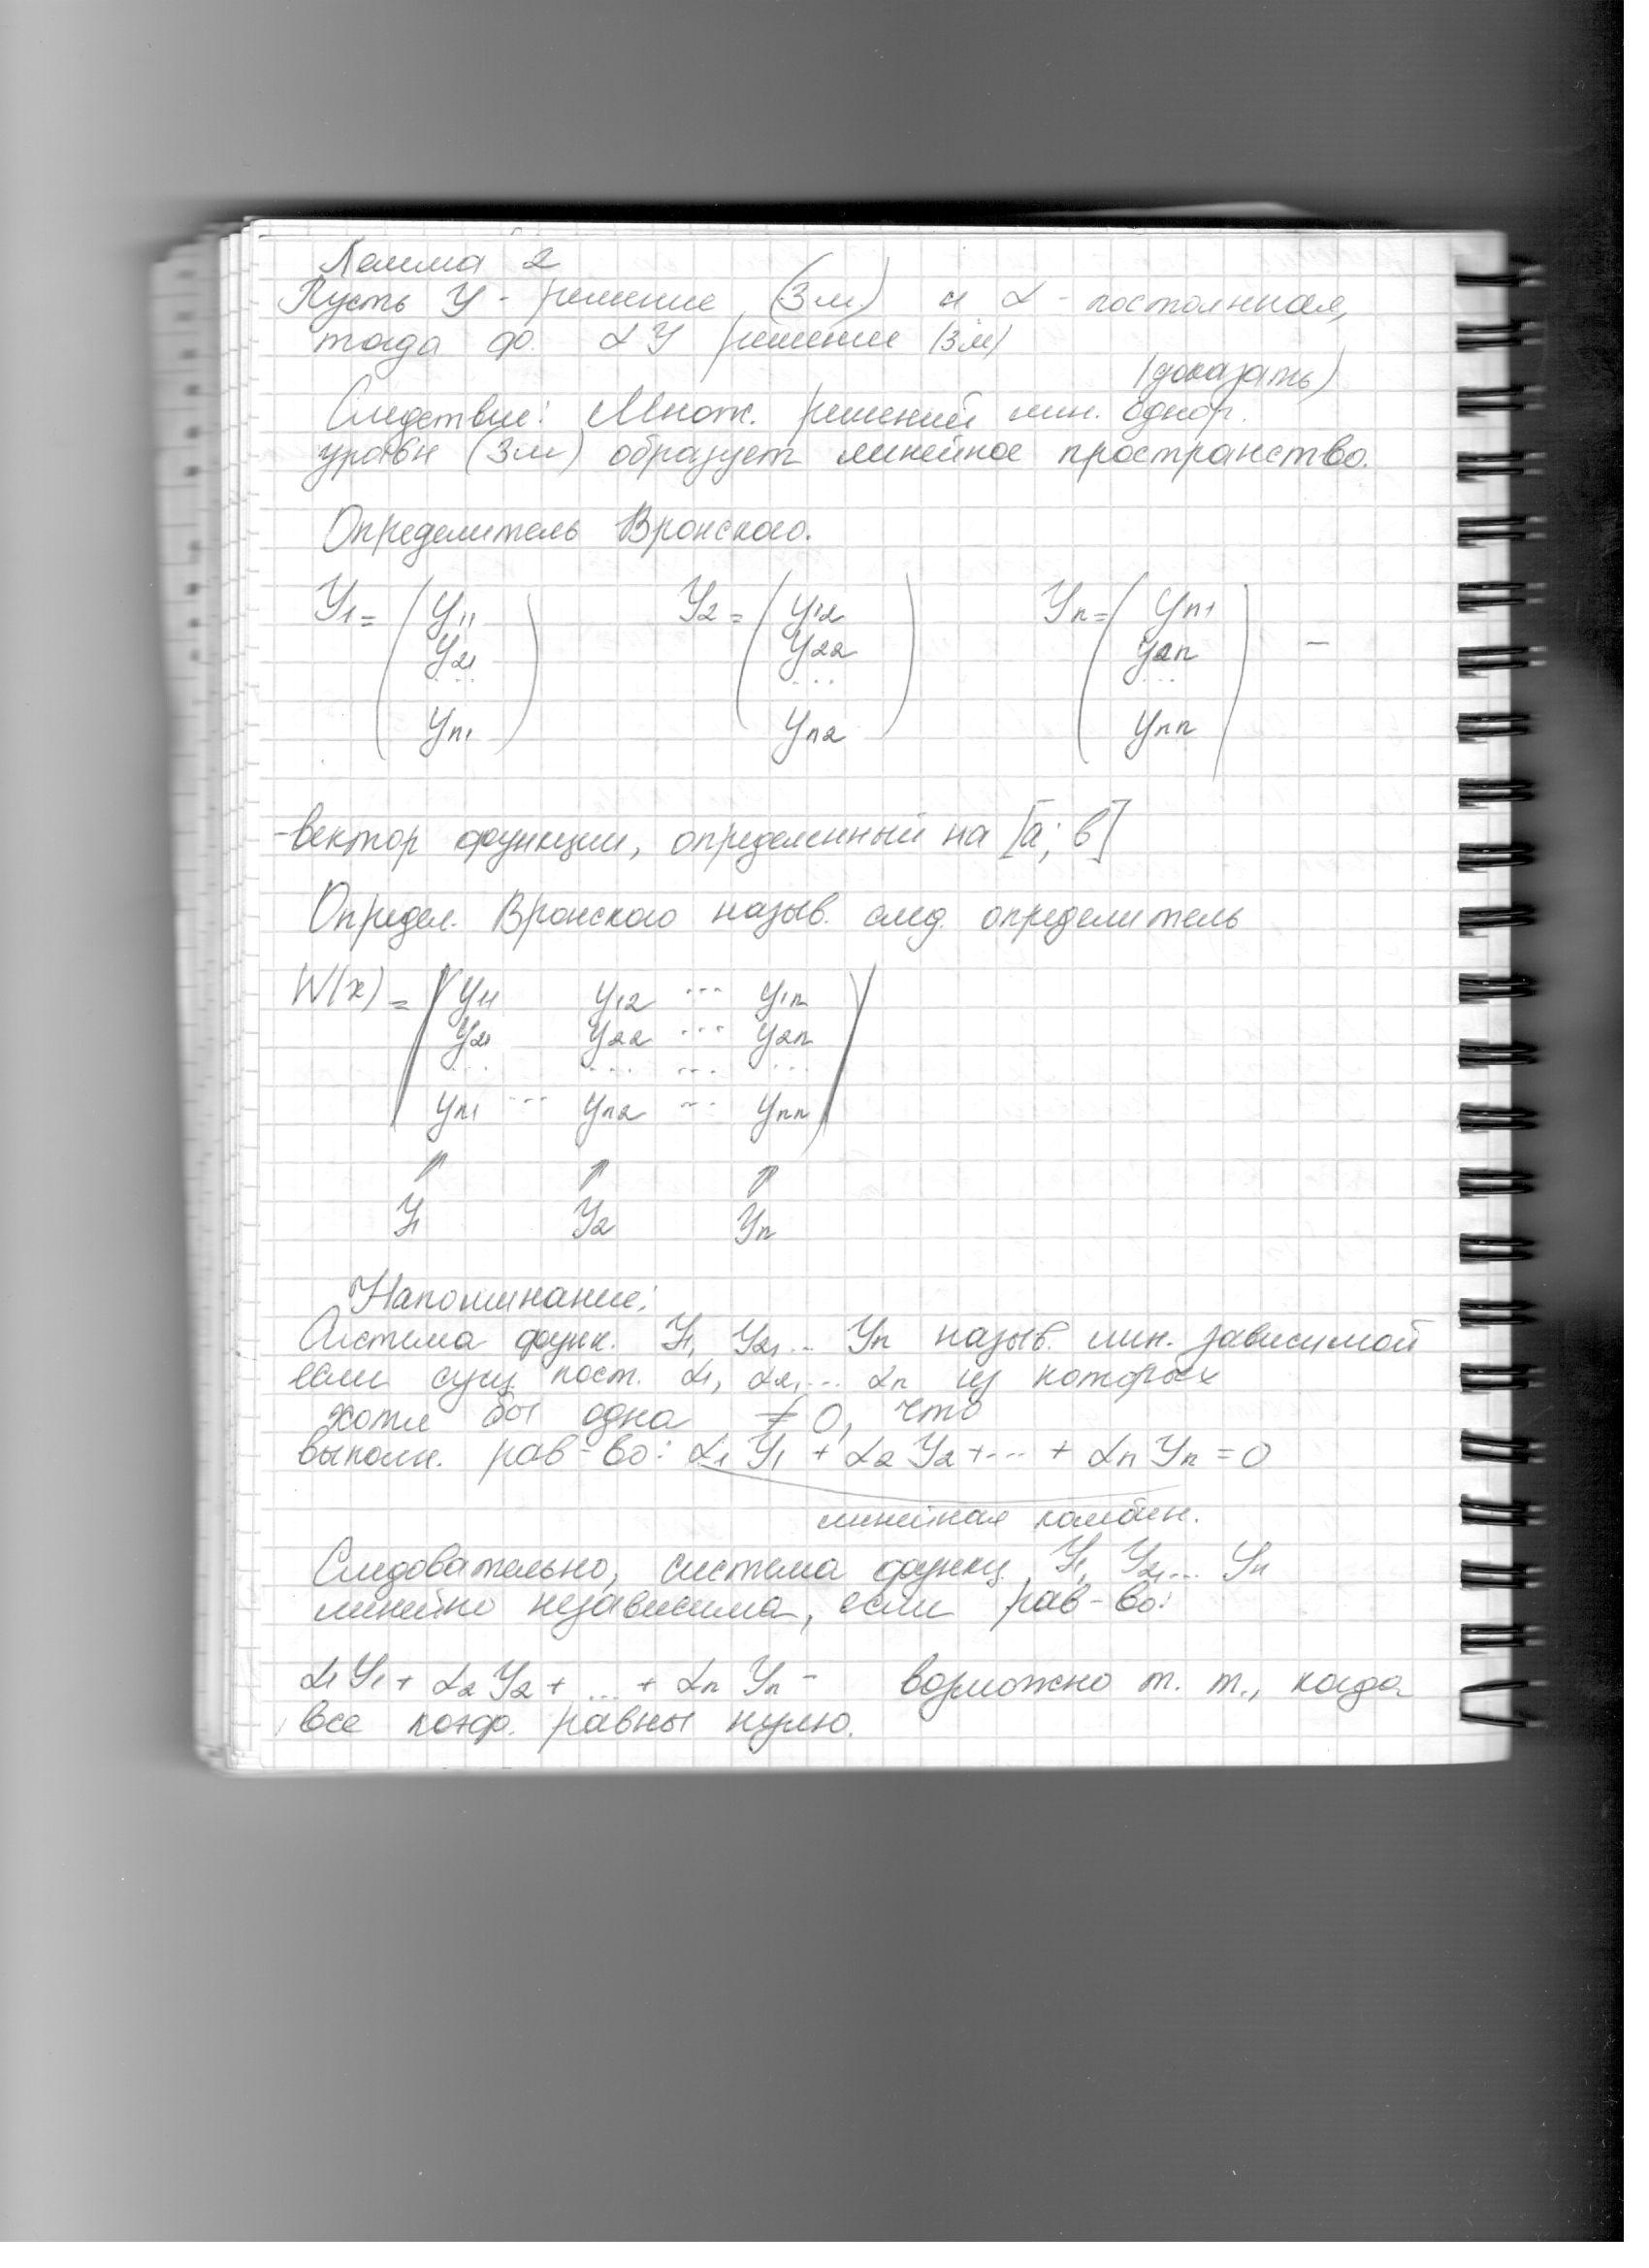 Лемма 2
Пусть Y - решение (3м) и α - постоянная,
тогда ф. αY решение (3м)
(доказать)
Следствие: Множ. решений лин. однор.
уравн (3м) образует линейное пространство.
Определитель Вронского.
Y1 = ( y11 Y2 = ( y12 Yn = ( yn1
y21 y22 y2n –
... ... ...
yn1 ) yn2 ) ynn )
-вектор функции, определенный на [а; в]
Определ. Вронского назыв. след. определитель
W(x) = | y11 y12 ... y1n |
y21 y22 ... y2n
... ... ... ...
yn1 ... yn2 ... ynn
↑ ↑ ↑
Y1 Y2 Yn
Напоминание:
Система функ. Y1, Y2, ... Yn назыв. лин. зависимой
если сущ пост. α1, α2, ... αn из которых
хотя бы одна ≠ 0, что
выполн. рав-во: α1 Y1 + α2 Y2 + ... + αn Yn = 0
линейная комбин.
Следовательно, система функц Y1, Y2, ... Yn
линейно независима, если рав-во:
α1 Y1 + α2 Y2 + ... + αn Yn - возможно т. т., когда
все коэф. равны нулю.